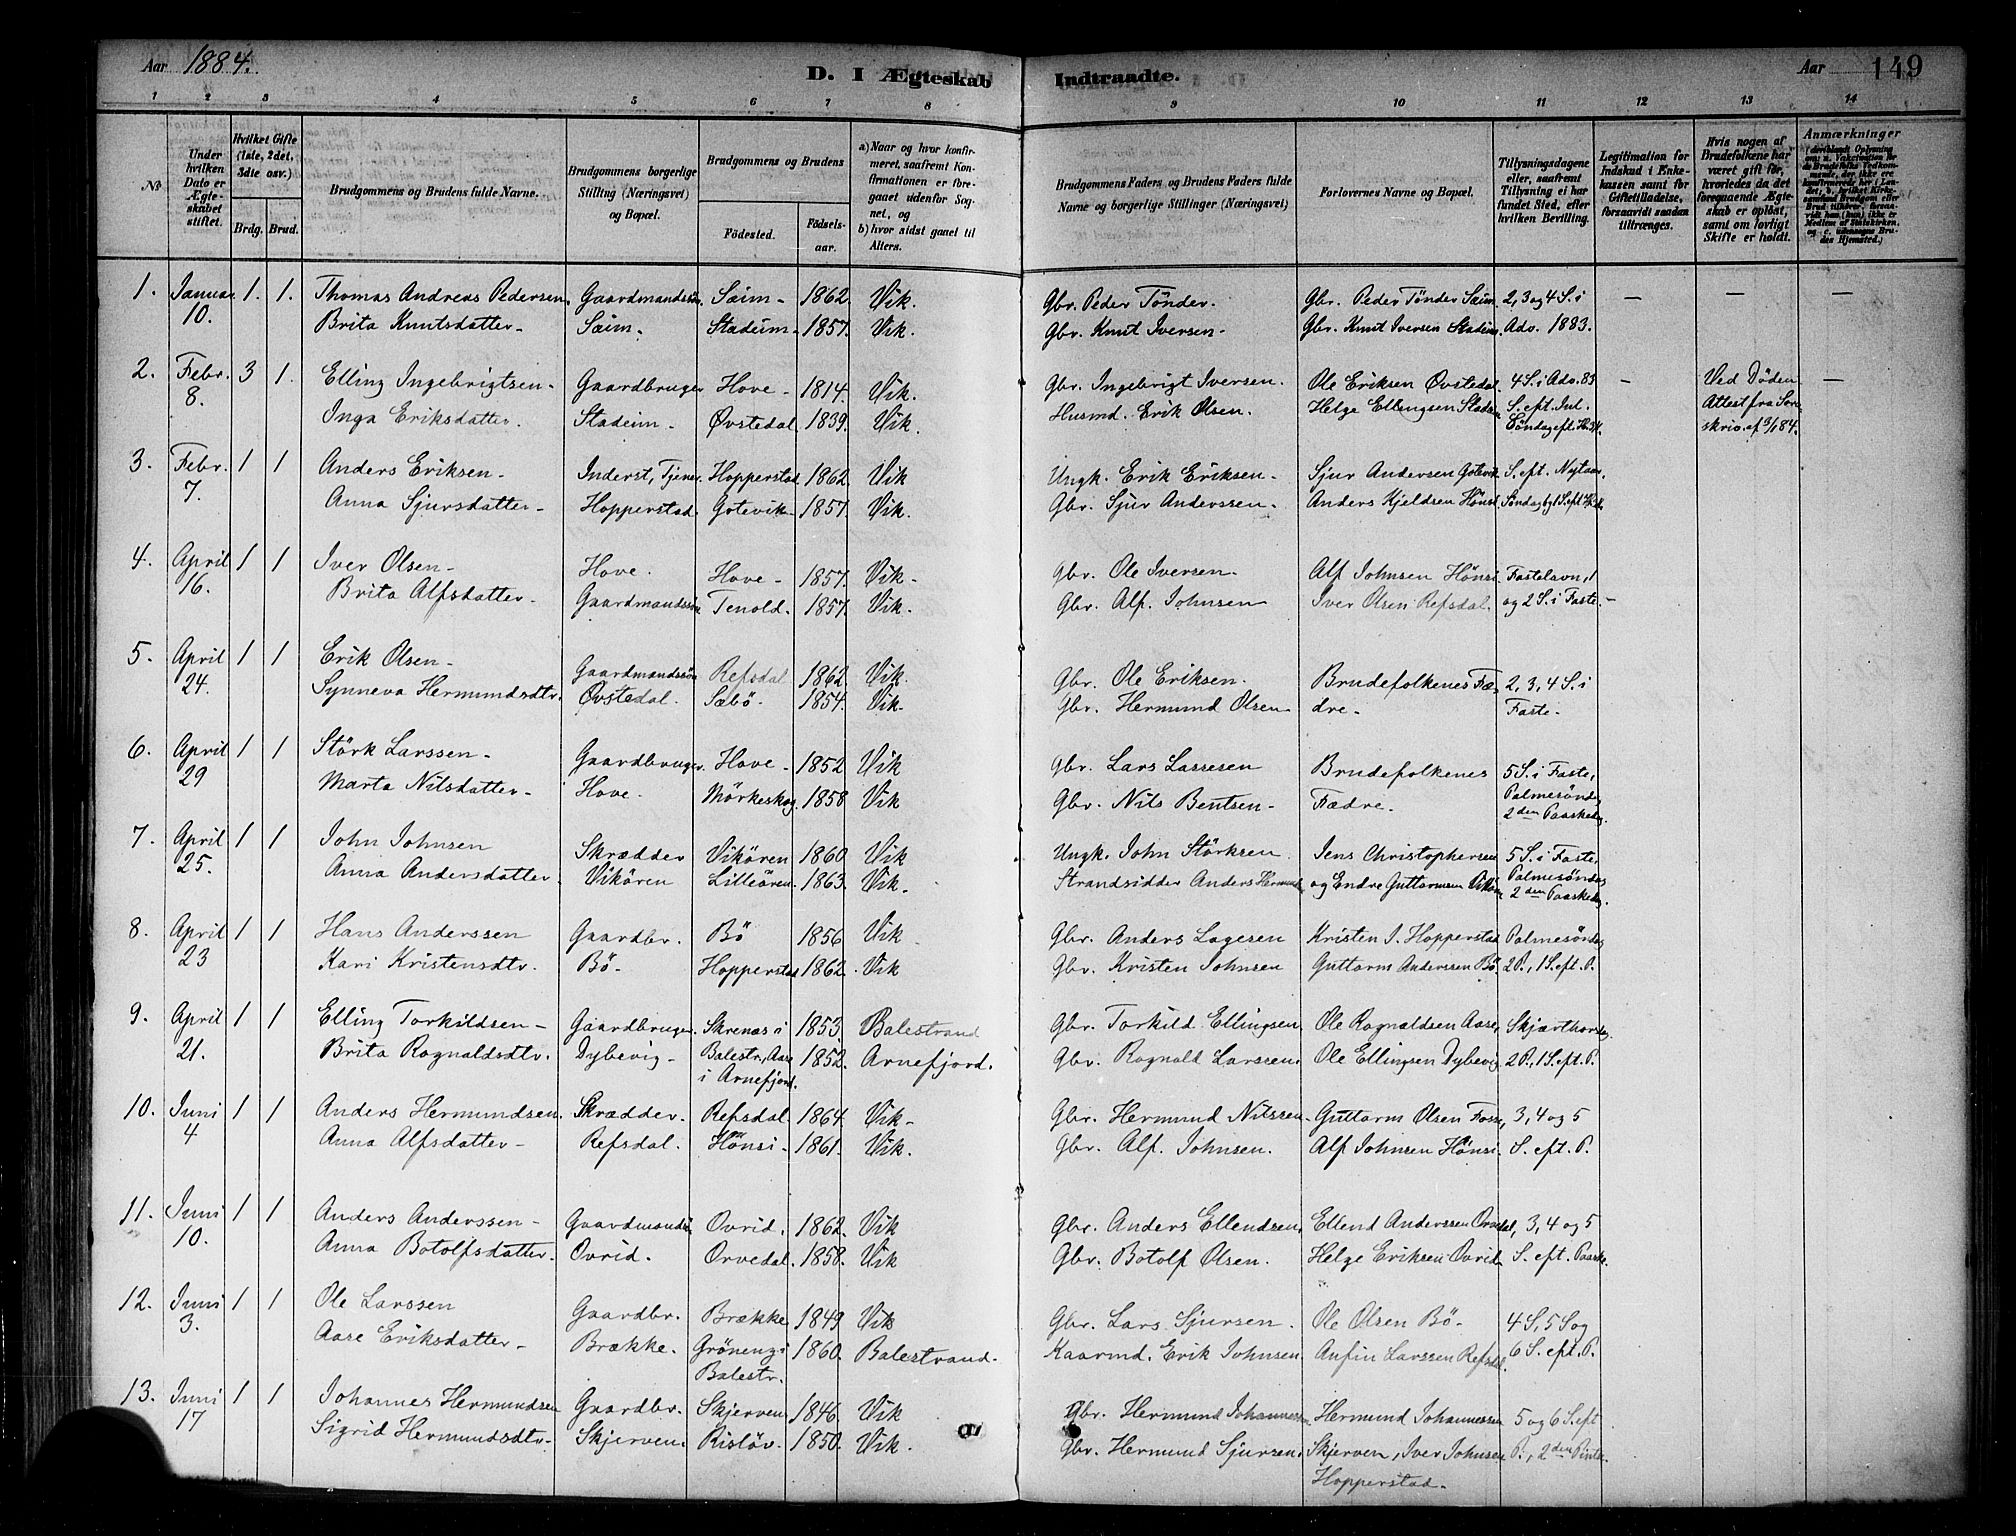 Aar 1884. D. I Ægteskab Indtraadte. Aar 149
1 2 3 4 5 6 7 8 9 10 11 12 13 14
№
Under hvilken Dato er Ægteskabet stiftet.
Hvilket Gifte (1ste, 2det, 3dte osv.)
Brdg. Brud.
Brudgommens og Brudens fulde Navne.
Brudgommens borgerlige Stilling (Næringsvei) og Bopæl.
Brudgommens og Brudens
Födested. Födselsaar.
a) Naar og hvor konfirmeret, saafremt Konfirmationen er foregaaet udenfor Sognet, og
b) hvor sidst gaaet til Alters.
Brudgommens Faders og Brudens Faders fulde Navne og borgerlige Stillinger (Næringsvei)
Forlovernes Navne og Bopæl.
Tillysningsdagene eller, saafremt Tillysning ei har fundet Sted, efter hvilken Bevilling.
Legitimation for Indskud i Enkekassen samt for Giftetilladelse, forsaavidt saadan tiltrænges.
Hvis nogen af Brudefolkene har været gift før, hvorledes da det foregaaende Ægteskab er opløst, samt om lovligt Skifte er holdt.
Anmærkninger
1. Januar 10. 1. 1. Thomas Andreas Pedersen. Gaardmandssön Sæim - 1862. Vik. Gbr. Peder Tönder. Gbr. Peder Tönder Sæim 2, 3 og 4 S. i — — —
Brita Knutsdatter - Sæim. Stadeim - 1857. Vik. Gbr. Knut Iversen - Gbr. Knut Iversen Stadeim Adv. 1883.
2. Febr. 8. 3 1. Elling Ingebrigtsen - Gaardbruger Hove - 1814. Vik. Gbr. Ingebrigt Iversen. Ole Eriksen Øvstedal 4 S. i Adv. 83 — Ved Döden —
Inga Eriksdatter. Stadeim - Øvstedal 1839. Vik. Husmd. Erik Olsen. Helge Ellingsen Stadeim S. eft. Jul. Attest fra Sorenskriv. af
3. Febr. 7. 1 1 Anders Eriksen - Inderst, Tjener Hopperstad 1862. Vik Ungk. Erik Eriksen - Sjur Andersen Gotevik S. eft. Nytaar,
Anna Sjursdatter - Hopperstad. Gotevik - 1857. Vik. Gbr. Sjur Anderssen - Anders Kjeldsen Hönsi
4. April 16. 1 1 Iver Olsen - Hove. Hove - 1857. Vik. Gbr. Ole Iversen - Alf Johnsen Hönsi Fastelavn, 1
Brita Alfsdatter. Gaardmandssön Tenold. 1857. Vik. Gbr. Alf Johnsen Iver Olsen Refsdal. og 2 S. i Faste. —
5. April 24. 1 1 Erik Olsen - Gaardmandssön Refsdal 1862. Vik. Gbr. Ole Eriksen. Brudefolkenes Fæ- 2, 3, 4 S. i
Synneva Hermundsdtr. Øvstedal. Sæbö. 1854. Vik. Gbr. Hermund Olsen - dre. Faste -
6. April 29 1 1 Störk Larssen - Gaardbruger. Hove - 1852 Vik Gbr. Lars Larssen Brudefolkenes 5 S. i Faste,
Marta Nilsdatter - Hove. Mörkeskog 1858 Vik Gbr. Nils Bentsen - Fædre. Palmesöndag
2den Paaskedag.
7. April 25. 1 1 John Johnsen Skrædder Vikören 1860 Vik Ungk. John Störksen Jens Christophersen 5 S. i Faste,
Anna Andersdatter. Vikören Lilleören. 1863. Vik. Strandsidder Anders Hermunds. og Endre Guttormsen Vikören Palmesöndag
2den Paaskedag.
8. April 23 1 1 Hans Anderssen Gaardbr. Bö 1856 Vik Gbr. Anders Lagesen Kristen I. Hopperstad Palmesöndag
Kari Kristensdtr. Bö - Hopperstad 1862. Vik Gbr. Kristen Johnsen Guttorm Anderssen Bö 2 P., 1 S. eft. P.
9. April 21. 1 1 Elling Torkildsen - Gaardbruger. Skrenæs i 1853. Balestrand Gbr. Torkild Ellingsen Ole Rognaldsen Aase, Skjærthorsdag.
Brita Rognaldsdtr. Dybevig - Balestr., Aase 1852. Arnefjord. Gbr. Rognald Larssen. Ole Ellingsen Dybevig 2 P., 1 S. eft. P.
i Arnefjord.
10. Juni 4 1 1 Anders Hermundsen. Skrædder. Refsdal. 1864. Vik - Gbr. Hermund Nilssen. Guttorm Olsen Fosse, 3, 4 og 5
Anna Alfsdatter - Refsdal. Hönsi - 1861. Vik. Gbr. Alf Johnsen. Alf Johnsen Hönsi. S. eft. P.
11. Juni 10. 1 1 Anders Anderssen - Gaardmandss. Ovrid. 1862. Vik Gbr. Anders Ellendsen. Ellend Anderssen Orvedal, 3, 4 og 5
Anna Botolfsdatter. Ovrid. Orvedal. 1858. Vik Gbr. Botolf Olsen. Helge Eriksen Ovrid S. eft. Paaske.
12. Juni 3. 1 1 Ole Larssen Gaardbr. Brække 1849 Vik Gbr. Lars Sjursen. Ole Olsen Bö - 4 S, 5 S og
Aase Eriksdatter - Brække. Gröneng i 1860. Balestrand. Kaarmd. Erik Johnsen Anfin Larssen Refsdal. 6 S. eft. P.
Balestr.
13. Juni 17 1 1 Johannes Hermundsen Gaardbr. Skjerven 1846. Vik Gbr. Hermund Johannessen Hermund Johannessen 5 og 6 S. eft
Sigrid Hermundsdtr. Skjerven. Rislöv. 1850. Vik. Gbr. Hermund Sjursen. Skjerven, Iver Johnsen P., 2den Pintse
Hopperstad.